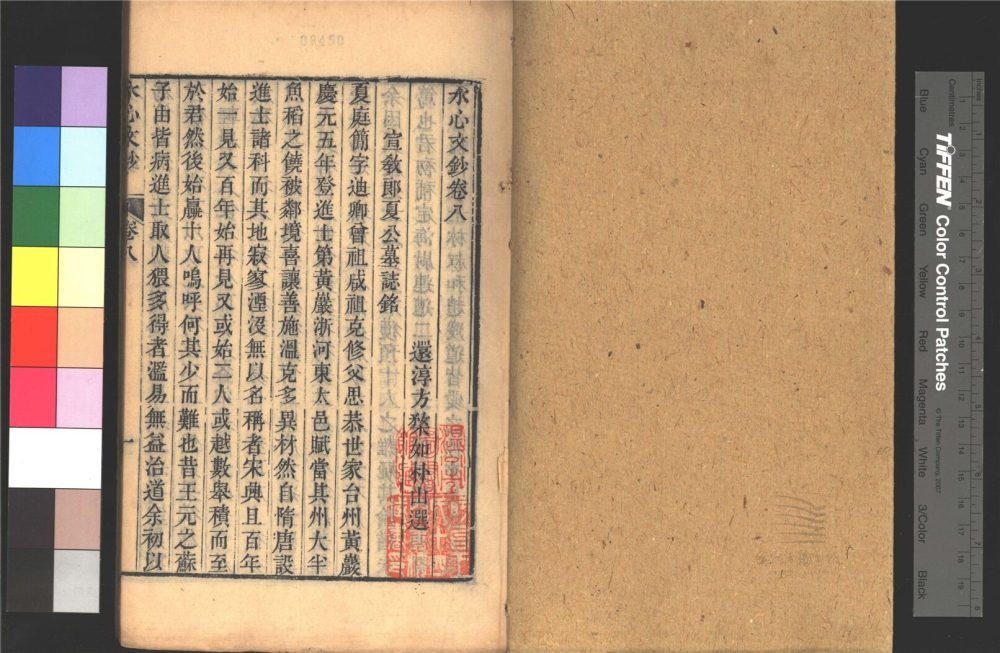 水心文鈔卷八
還淳方棃如朴山選
宣教郎夏公墓誌銘
夏庭簡字迪卿曾祖咸祖克修父思恭世家台州黃巖
慶元五年登進士第黃巖浙河東太邑賦當其州大半
魚稻之饒被鄰境喜讓善施溫克多異材然自隋唐設
進士諸科而其地寂寥湮沒無以名稱者宋典且百年
始一見又百年始再見又或始二人或越數舉積而至
於君然後始贏十人嗚呼何其少而難也昔王元之蘇
子由皆病進士取人猥多得者濫易無益治道余初以
水心文鈔 卷八 一
09450
TIFFEN Color Control Patches
© The Tiffen Company, 2007
Inches
Centimetres
Blue Cyan Green Yellow Red Magenta White 3/Color Black